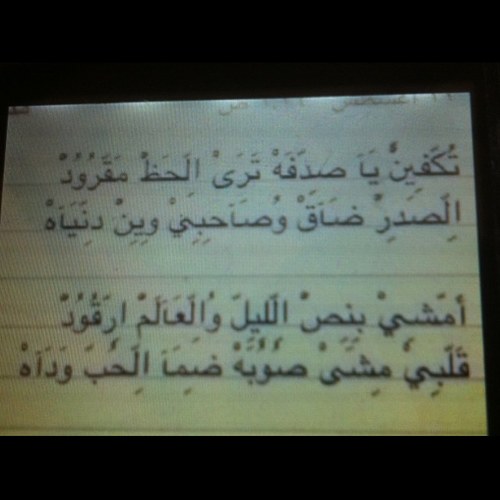 أغسطس
تُكَفِينْ يَا صدّفَهْ تَرَىْ الَحَظْ مَقَرُوُدْ
الِصَدرِ ضَاقْ وُصَاحبِيْ وِينْ دنِّيَاهْ
أمَشيْ بِنِصْ الّليلَ وُالَعَالَمْ ارَقُودْ
قَلَبِيْ مِشَىْ صُوُبَهْ ضَمِاَ الِحُبَ وَدَاهْ